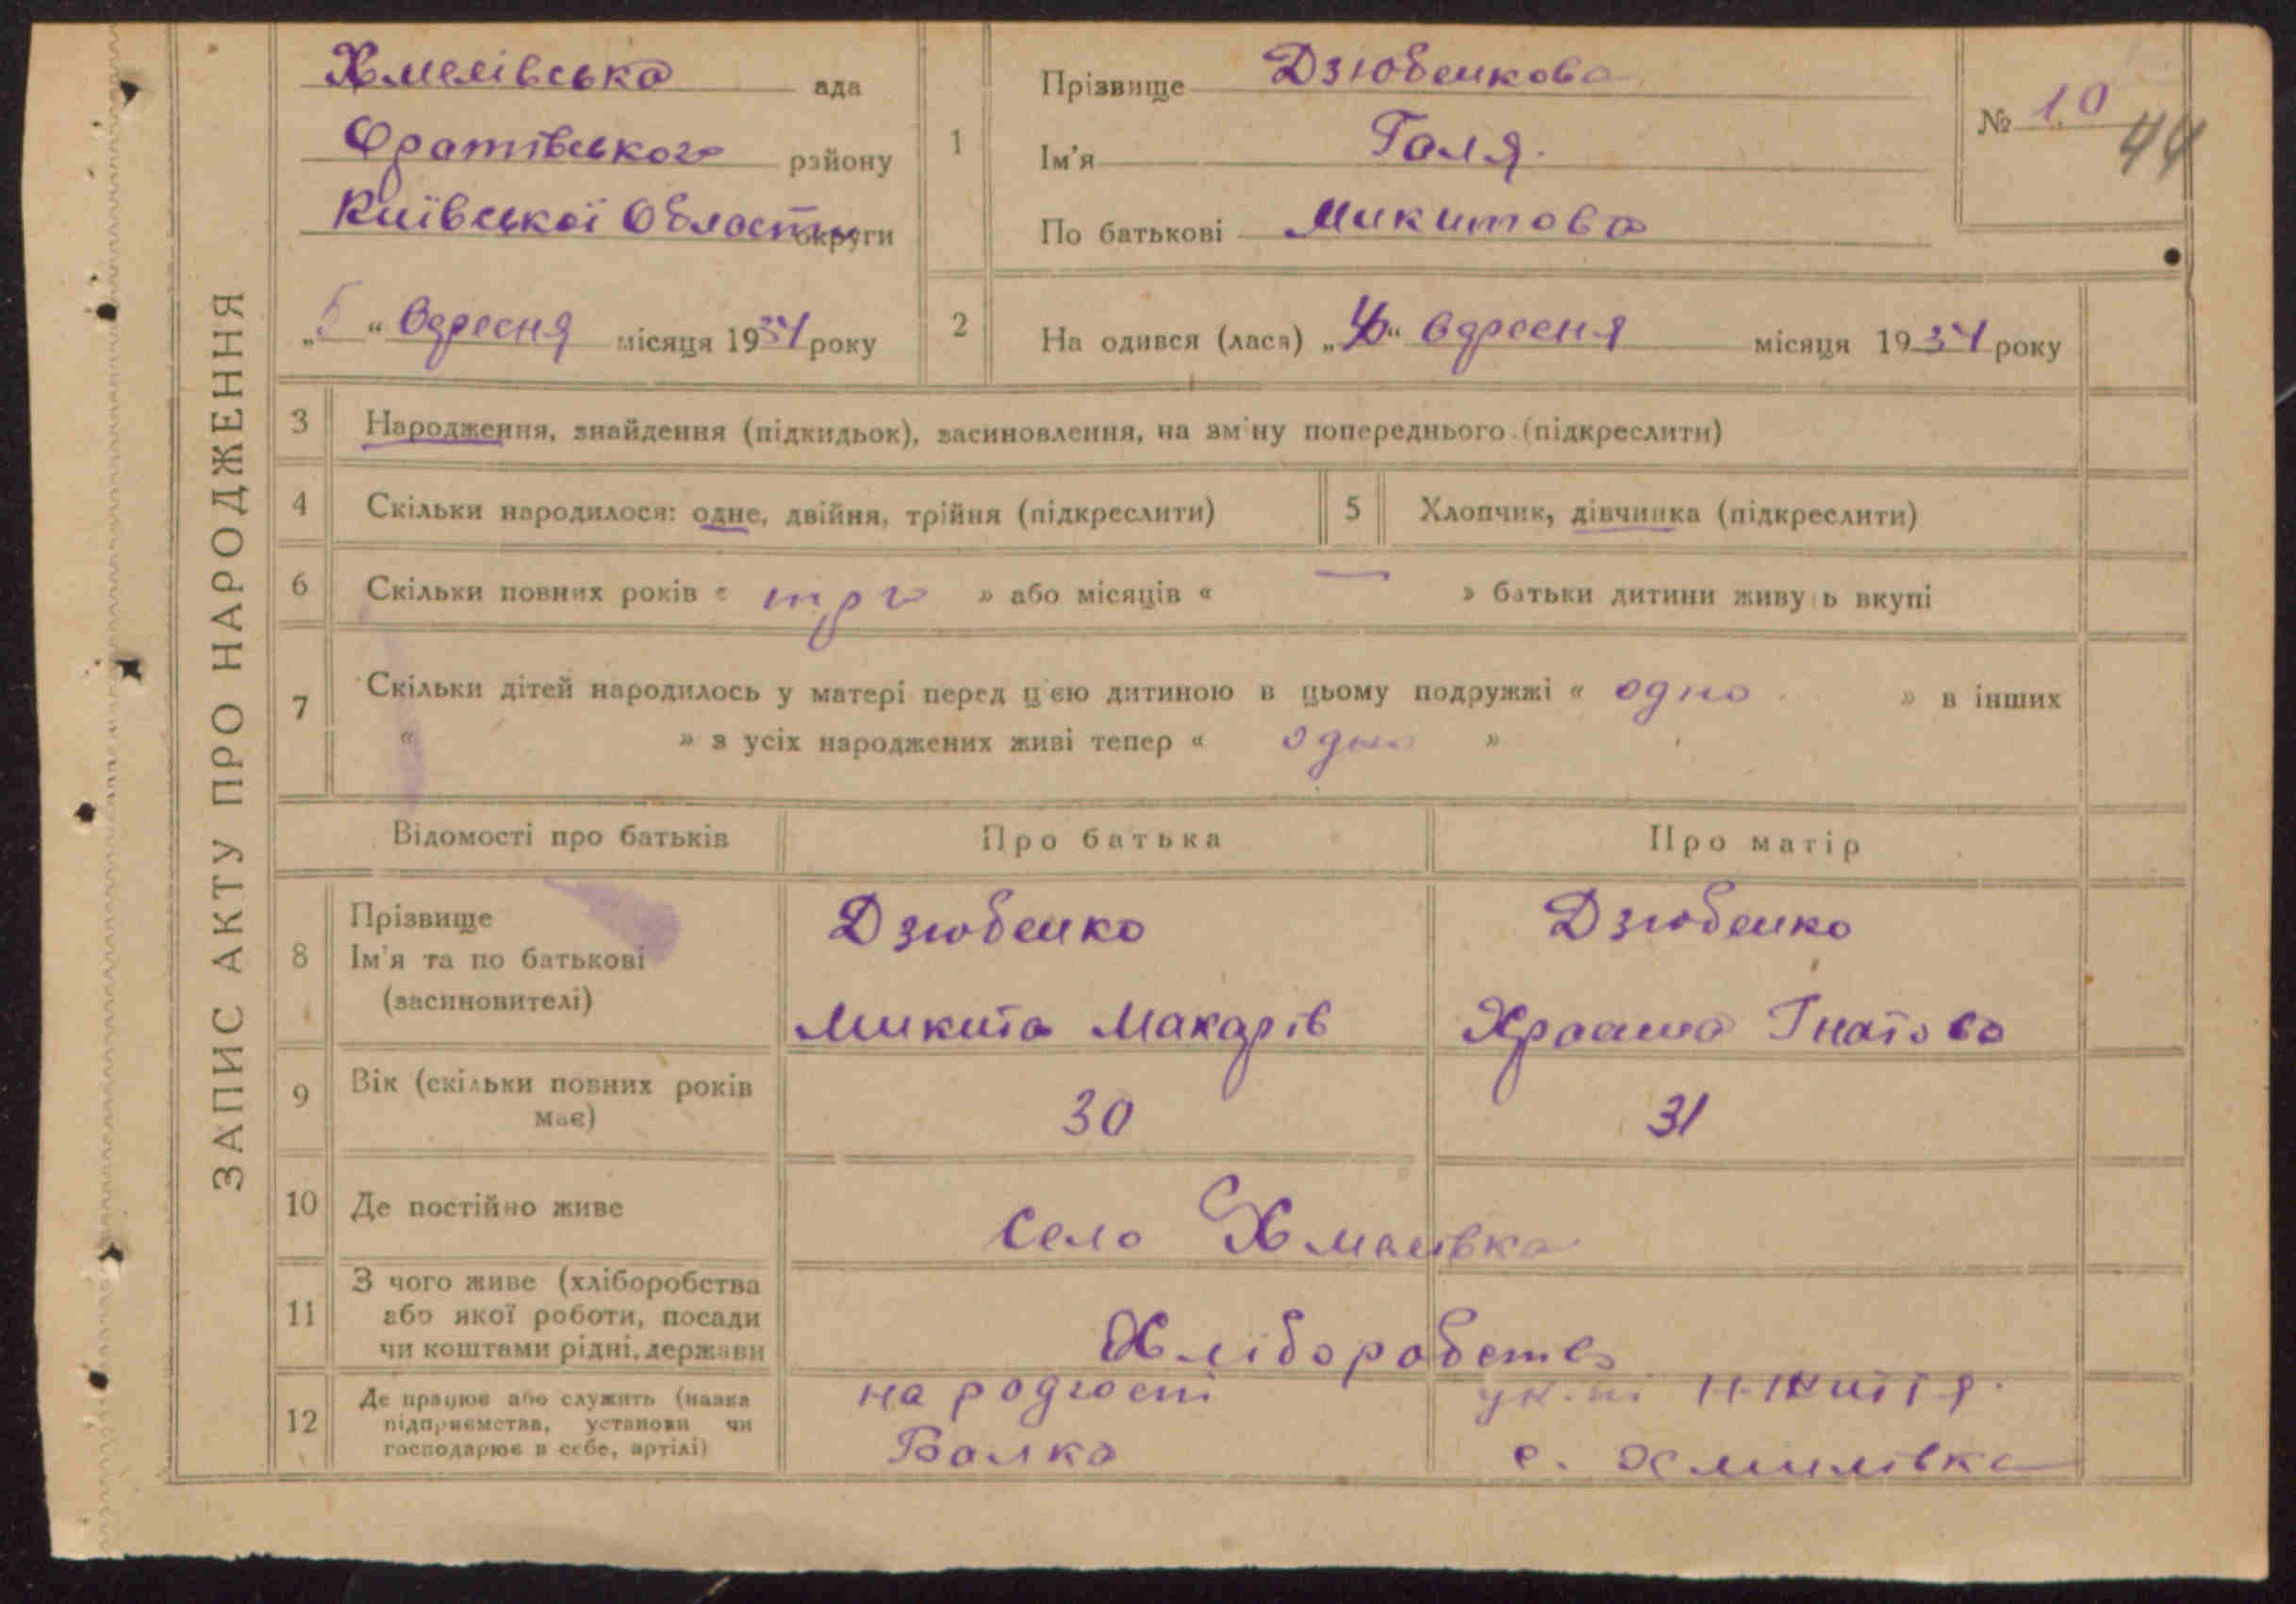 ЗАПИС АКТУ ПРО НАРОДЖЕННЯ
Хмелівська ада
Оратівського району
Київської Области округи
„5“ Вдресня місяця 1934 року
1
Прізвище Дзюбенкова
Ім'я Галя.
По батькові Микитова
№ 10
44
2
На одився (лася) „ “ Вдресня місяця 1934 року
3 Народження, знайдення (підкидьок), засиновлення, на зм ну попереднього (підкреслити)
4 Скільки народилося: одне, двійня, трійня (підкреслити)
5 Хлопчик, дівчинка (підкреслити)
6 Скільки повних років « три » або місяців « — » батьки дитини живу ь вкупі
7 Скільки дітей народилось у матері перед цією дитиною в цьому подружжі « одно » в інших
« » з усіх народжених живі тепер « одно »
Відомості про батьків
Про батька
Про матір
8 Прізвище
Ім'я та по батькові
(засиновителі)
Дзюбенко
Микита Макарів
Дзюбенко
Гнатова
9 Вік (скільки повних років
має)
30
31
10 Де постійно живе
Село Хмелівка
11 З чого живе (хліборобства
або якої роботи, посади
чи коштами рідні, держави
Хліборобство
12 Де працює або служить (назва
підприємства, установи чи
господарює в себе, артілі)
на
Балка
с. Хмилівка